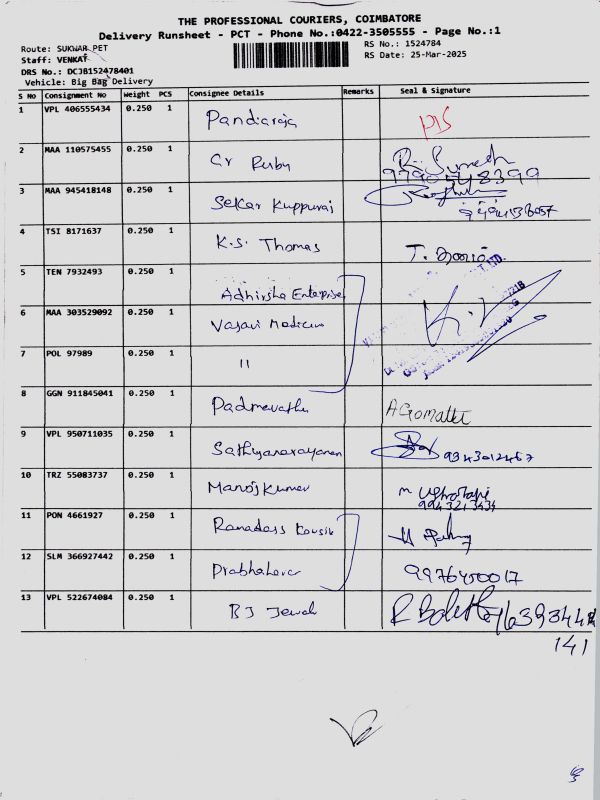 THE PROFESSIONAL COURIERS, COIMBATORE
Delivery Runsheet - PCT - Phone No.:0422-3505555 - Page No.:1
Route: SUKWAR PET
RS No.: 1524784
Staff: VENKAT
RS Date: 25-Mar-2025
DRS No.: DCJB152478401
Vehicle: Big Bag Delivery
S No Consignment No Weight PCS Consignee Details Remarks Seal & Signature
1 VPL 406555434 0.250 1 Pandiaraja
2 MAA 110575455 0.250 1 Gr Ruby
3 MAA 945418148 0.250 1 Sekar Kuppuraj
4 TSI 8171637 0.250 1 K.S. Thomas
5 TEN 7932493 0.250 1 Adhirsha Enterprise
6 MAA 303529092 0.250 1 Vasavi
7 POL 97989 0.250 1 11
8 GGN 911845041 0.250 1 Padmavathi
9 VPL 950711035 0.250 1 Sathyanarayanan
9343012467
10 TRZ 55083737 0.250 1 Manoj Kumar
9943213434
11 PON 4661927 0.250 1 Ramadass Kousik
12 SLM 366927442 0.250 1 Prabhakar 9976450017
13 VPL 522674084 0.250 1 BJ
141